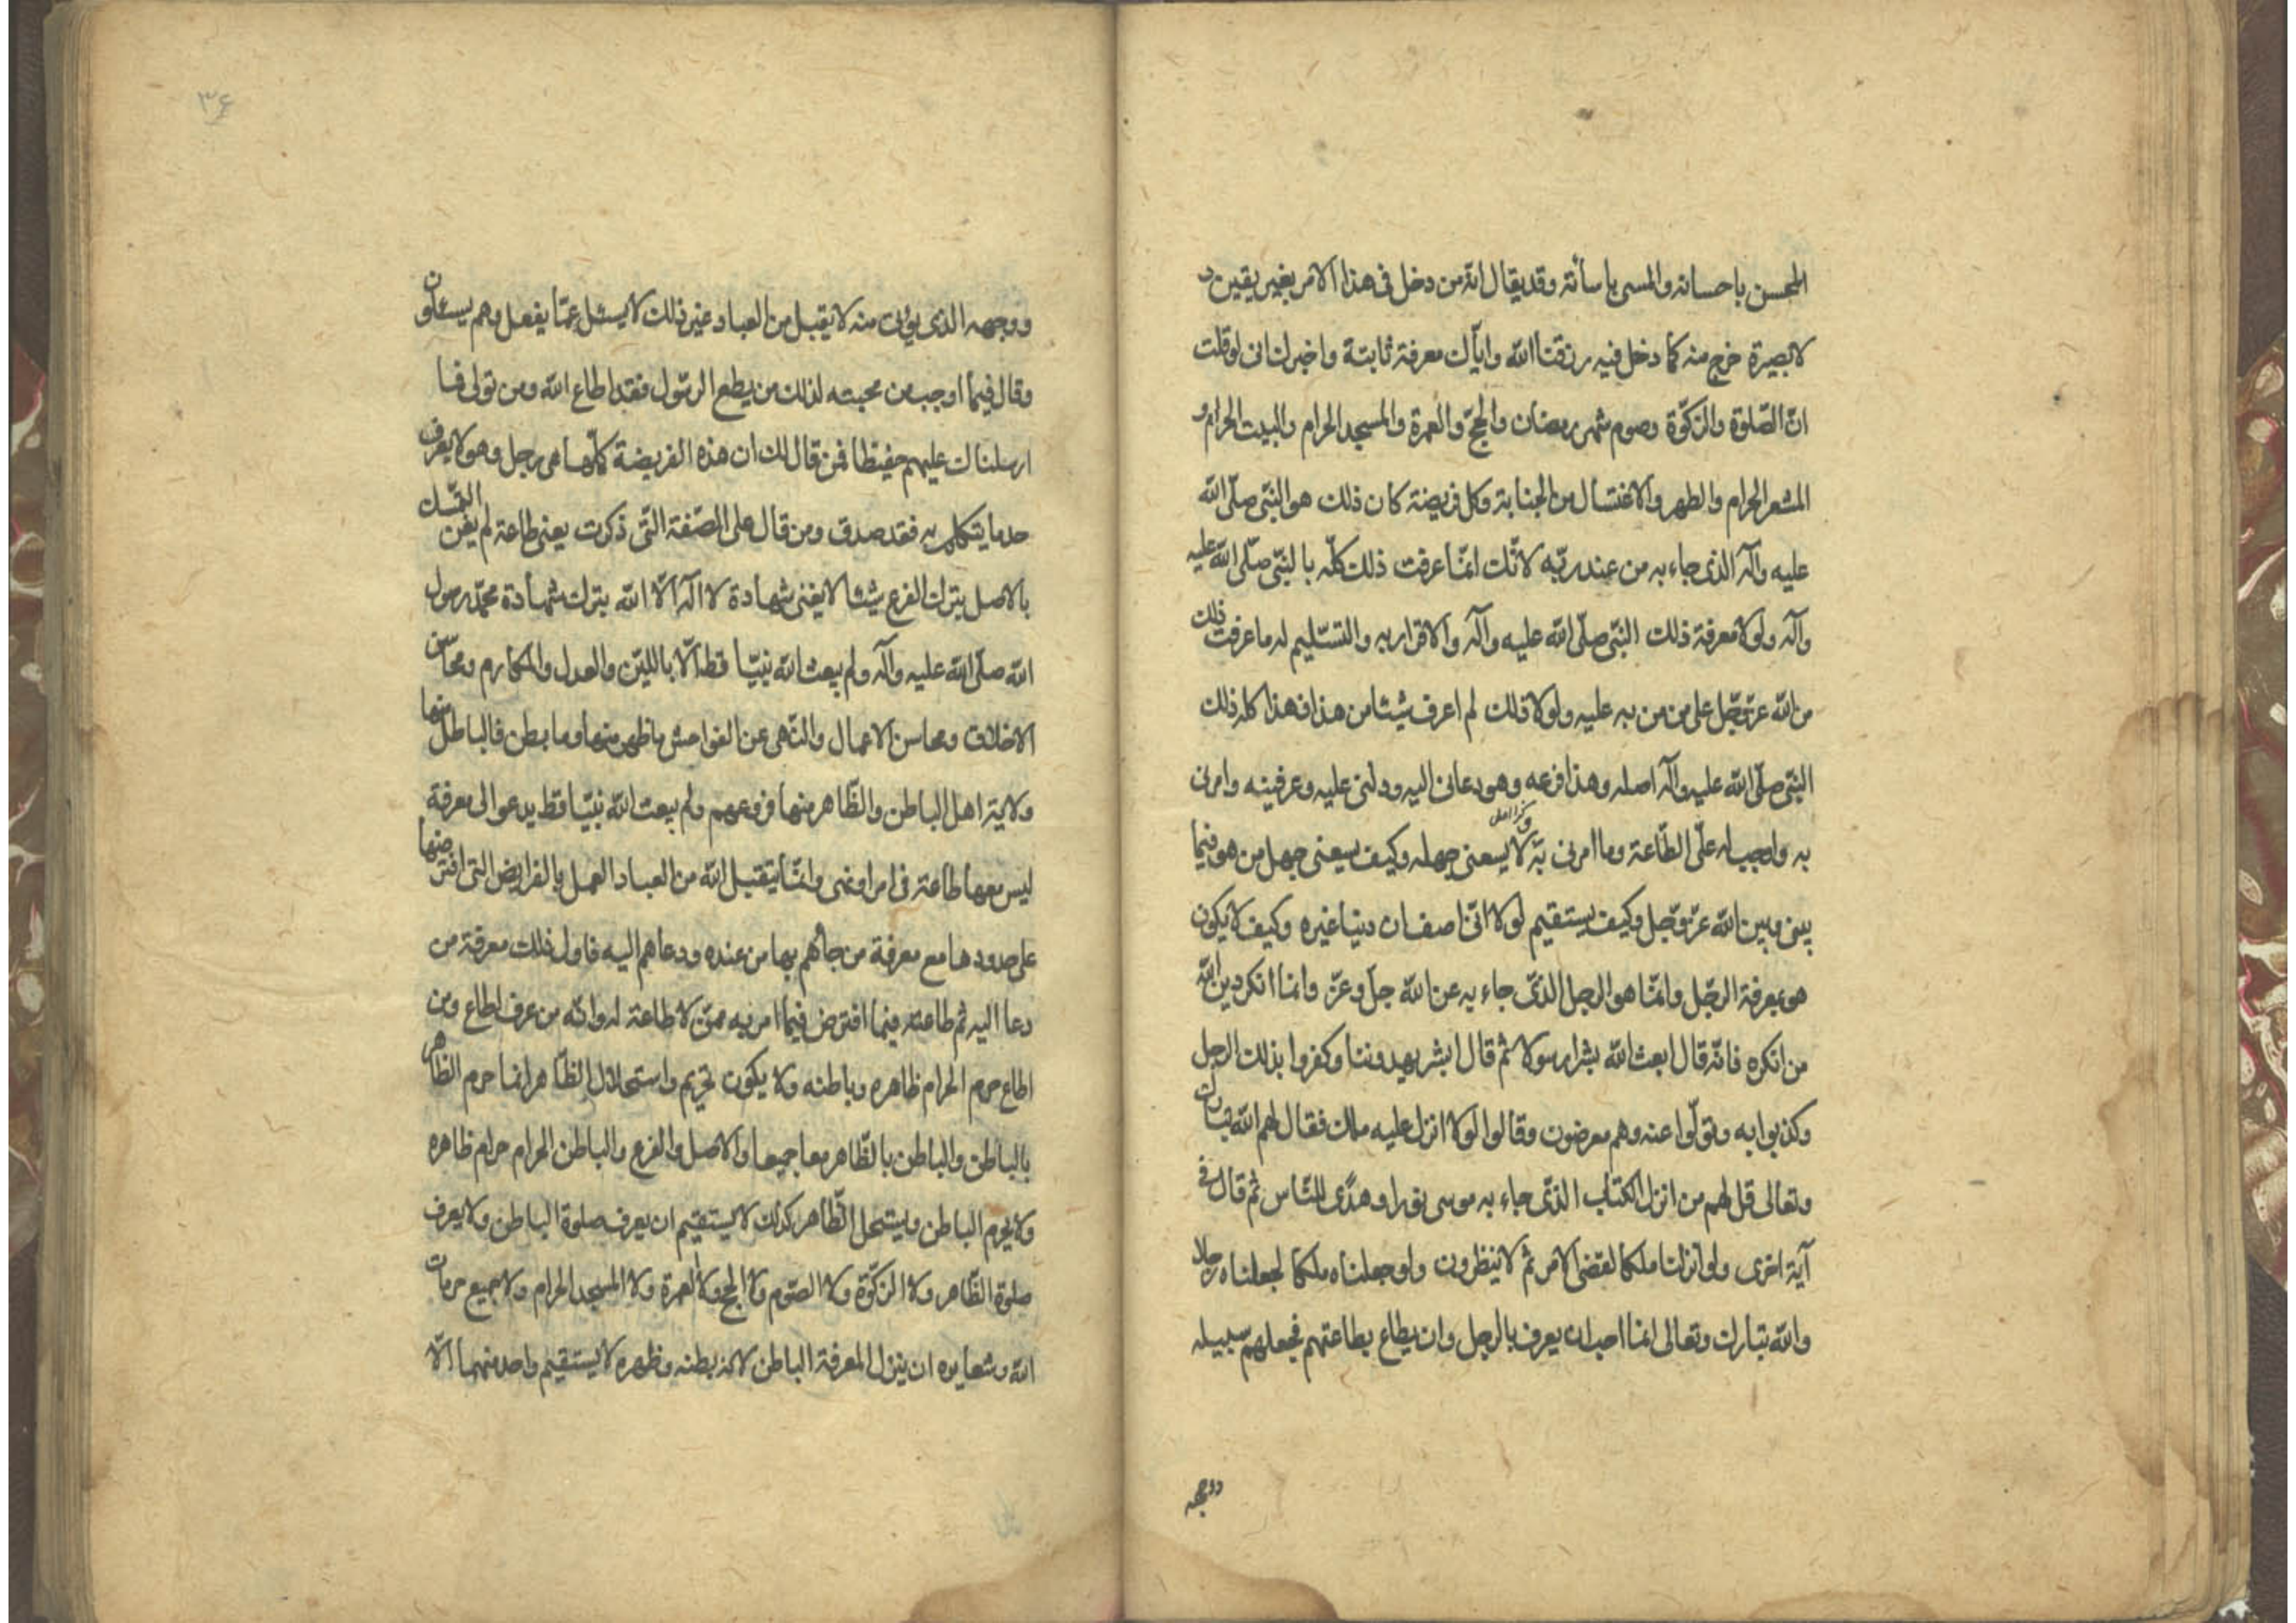 المحسن باحسانه والمسى باسائته وقد يقال انه من دخل فى هذا الامر بغير يقين و
لا بصيرة خرج منه كما دخل فيه رزقنا الله واياك معرفة ثابتة واخبرك انى لو قلت
انّ الصّلوة والزكوّة وصوم شهر رمضان والحجّ والعمرة والمسجد الحرام والبيت الحرام و
المشعر الحرام والطهر والاغتسال من الجنابة وكل فريضة كان ذلك هو النبّى صلّى الله
عليه وآله الذى جاء به من عند ربّه لانّك انمّا عرفت ذلك كلّه بالنبّى صلّى الله عليه
وآله ولولا معرفة ذلك النبّى صلّى الله عليه وآله والاقرار به والتسّليم له ما عرفت ذلك
من الله عزّ وجّل على من من به عليه ولولا ذلك لم اعرف شيئا من هذا فهذا كله ذلك
النبّى صلّى الله عليه وآله اصله وهذا فرعه وهو دعانى اليه ودلنى عليه وعرفنيه وامرنى
به واوجب له علّى الطّاعة وما امرنى به لا يسعنى جهله وكيف يسعنى جهل من هو فيما
بينى وبين الله عزّ وجّل وكيف يستقيم لولا انّى اصف ان دينا غيره وكيف لا يكون
هو بمعرفة الرجّل وانمّا هو الرجل الذّى جاء به عن الله جلّ وعزّ وانما انكر دين الله
من انكره فانّه قال ابعث الله بشرا رسولا ثم قال ابشر يهدوننا وكفروا بذلك الرجل
وكذبوا به وتولّوا عنه وهم معرضون وقالوا لولا انزل عليه ملك فقال لهم الله تبارك
وتعالى قل لهم من انزل الكتاب الذّى جاء به موسى نورا وهدًى للنّاس ثم قال فى
آية اخرى ولو انزلنا ملكا لقضى الامر ثم لا ينظرون ولو جعلناه ملكا لجعلناه رجلا
والله تبارك وتعالى انما احب ان يعرف بالرجل وان يطاع بطاعتهم فجعلهم سبيله
ووجهه
٣۶
ووجهه الذى يؤتى منه لا يقبل من العباد غير ذلك لا يسئل عمّا يفعل وهم يسئلون
وقال فيما اوجب من محبته لذلك من يطع الرسّول فقد اطاع الله ومن تولى فما
ارسلناك عليهم حفيظا فمن قال لك ان هذه الفريضة كلّها هى رجل وهو لا يعرف
حد ما يتكلم به فقد صدق ومن قال على الصّفة التّى ذكرت يعنى طاعة لم يغن التمسّك
بالاصل بترك الفرع شيئا لا يغنى شهادة لا اله الّا الله بترك شهادة محمّد رسول
الله صلّى الله عليه وآله ولم يبعث الله نبيّا قط الّا بالليّن والعدل والمكارم ومحاسن
الاخلاق ومحاسن الاعمال والنّهى عن الفواحش ما ظهر منها وما بطن فالباطل منها
ولاية اهل الباطن والظّاهر منها فروعهم ولم يبعث الله نبيّا قط يدعو الى معرفة
ليس معها طاعة فى امر او نهى وانمّا يتقبل الله من العباد العمل بالفرايض التى افترضها
على حدودها مع معرفة من جائهم بها من عنده ودعاهم اليه فاول ذلك معرفة من
دعا اليه ثم طاعته فيما افترض فيما امر به ممّن لا طاعة له وانّه من عرف اطاع ومن
اطاع حرم الحرام ظاهره وباطنه ولا يكون تحريم واستحلال الظّاهر انما حرم الظاهر
بالباطن والباطن بالظّاهر معا جميعا والاصل والفرع والباطن الحرام حرام ظاهره
ولا يحرم الباطن ويستحل الظّاهر كذلك لا يستقيم ان يعرف صلوة الباطن ولا يعرف
صلوة الظّاهر ولا الزكوّة ولا الصّوم ولا الحج ولا العمرة ولا المسجد الحرام ولا جميع حرمات
الله وشعايره ان ينزل المعرفة الباطن لانه بطنه وظهره لا يستقيم واحد منهما الّا